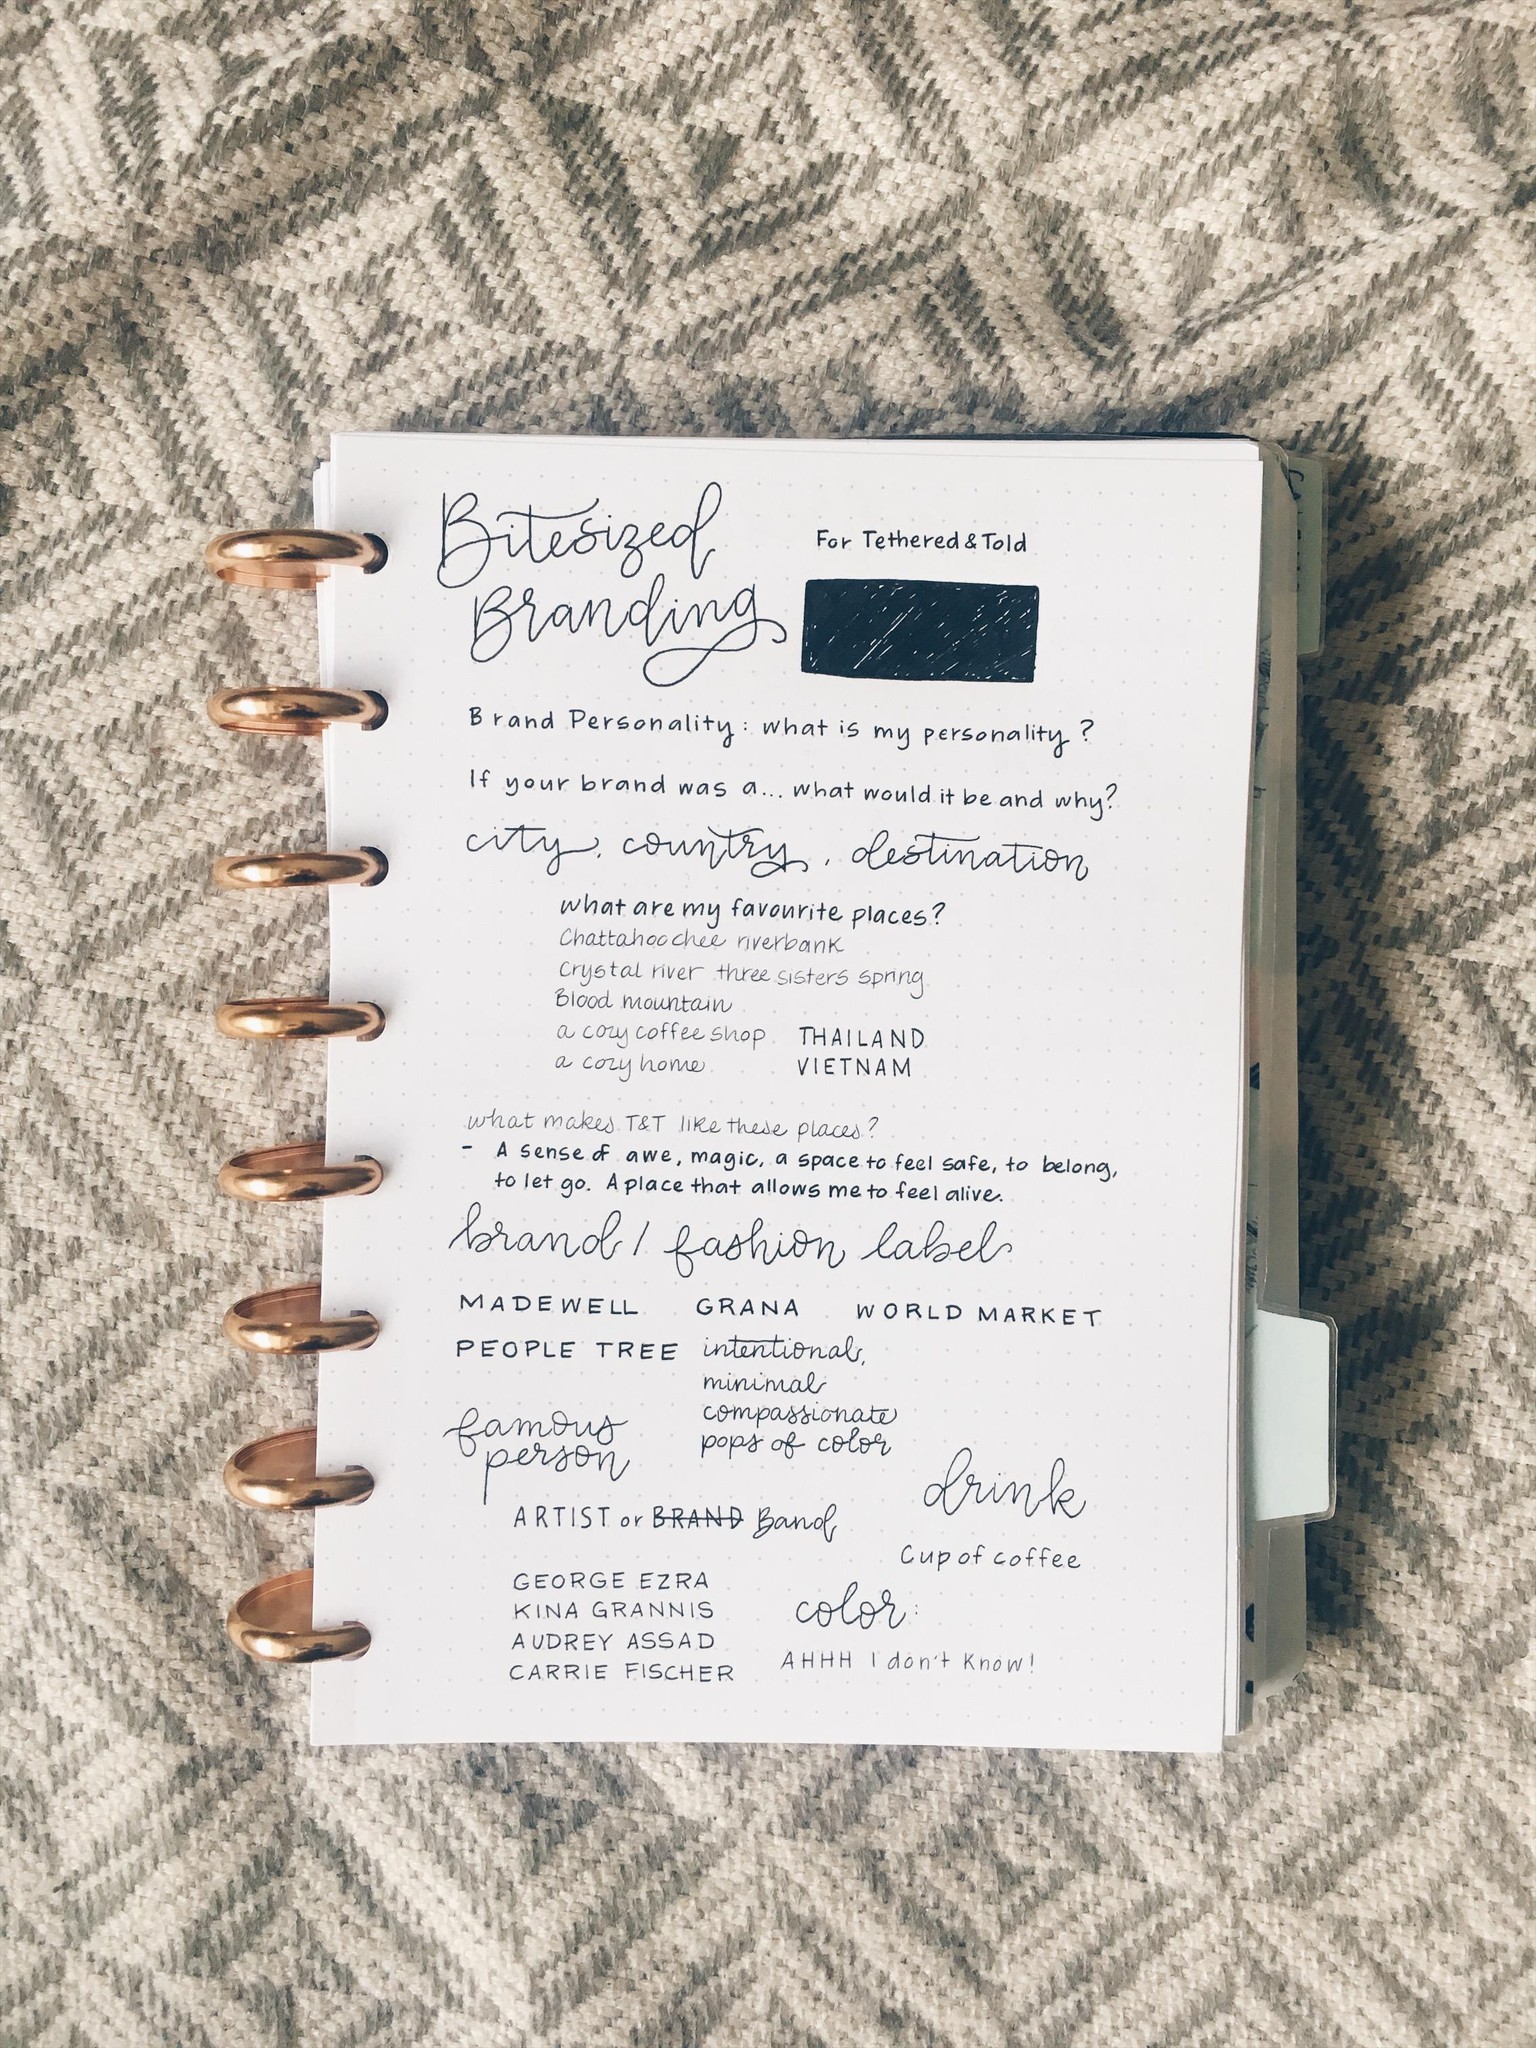 Bitesized
Branding
For Tethered & Told
Brand Personality: what is my personality?
If your brand was a... what would it be and why?
city, country, destination
what are my favourite places?
Chattahoochee riverbank
Crystal river three sisters spring
Blood mountain
a cozy coffee shop THAILAND
a cozy home VIETNAM
what makes T&T like these places?
- A sense of awe, magic, a space to feel safe, to belong,
to let go. A place that allows me to feel alive.
brand / fashion label
MADEWELL GRANA WORLD MARKET
PEOPLE TREE intentional,
minimal
compassionate
pops of color
famous
person
ARTIST or BRAND Band
GEORGE EZRA
KINA GRANNIS
AUDREY ASSAD
CARRIE FISCHER
drink
Cup of coffee
color:
AHHH I don't know!